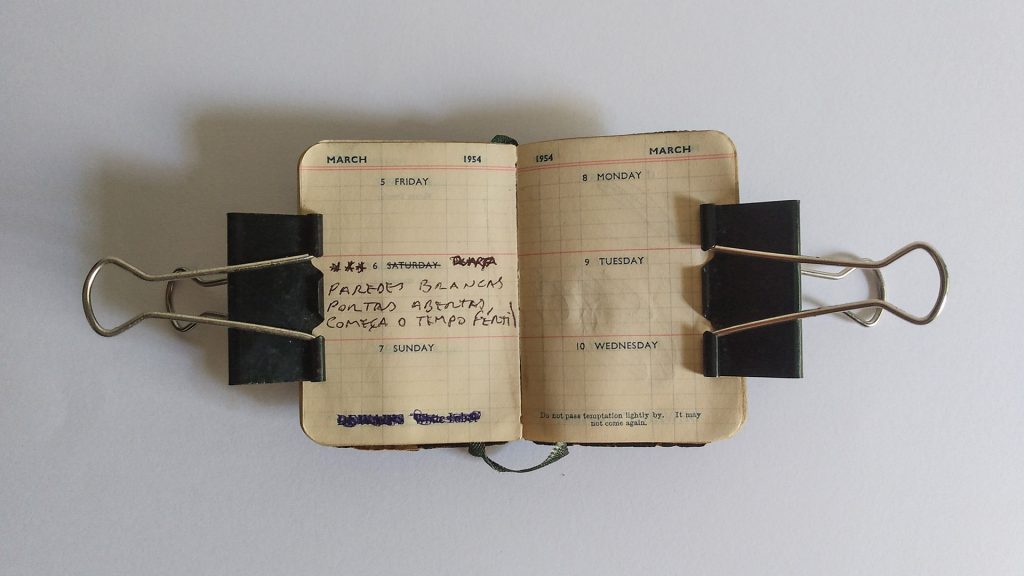 MARCH 1954
5 FRIDAY
*** 6 SATURDAY QUARTA
PAREDES BRANCAS
PORTAS ABERTAS,
COMEÇA O TEMPO FÉRTIL
7 SUNDAY
White Label
1954 MARCH
8 MONDAY
9 TUESDAY
10 WEDNESDAY
Do not pass temptation lightly by. It may
not come again.